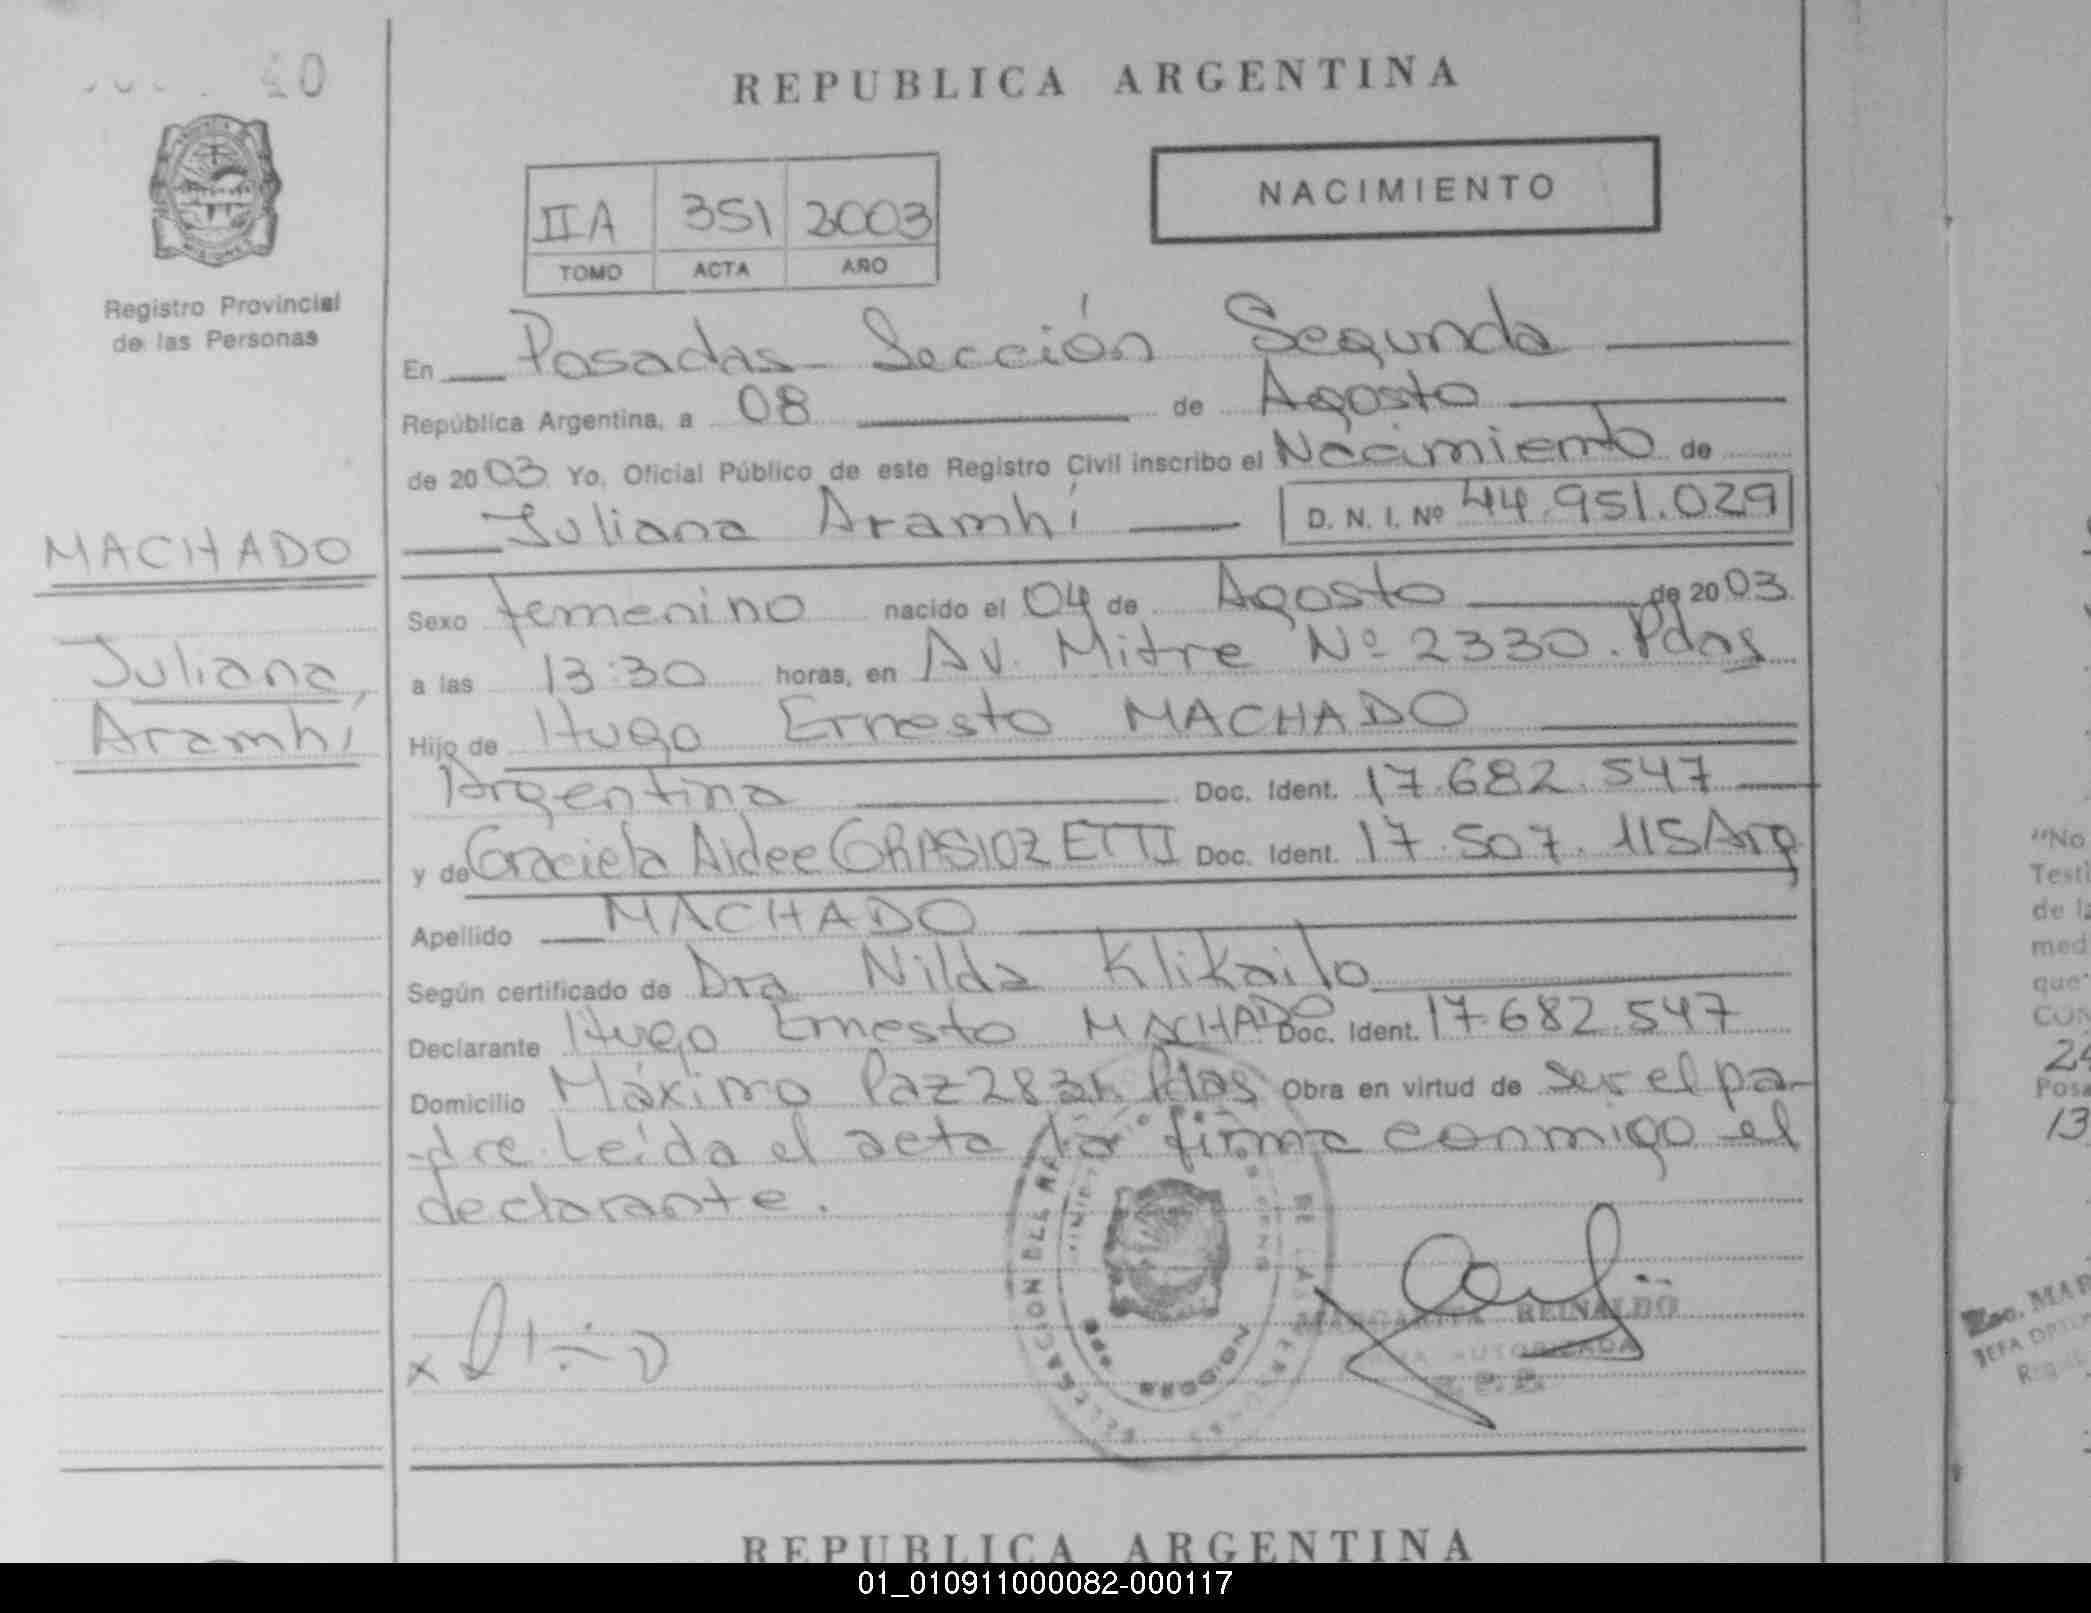 40
REPUBLICA ARGENTINA
NACIMIENTO
IIA 351 2003
TOMO ACTA AÑO
Registro Provincial
de las Personas
En Posadas Sección Segunda
República Argentina, a 08 de Agosto
de 2003 Yo, Oficial Público de este Registro Civil inscribo el Nacimiento de
Juliana Aramhí D. N. I. Nº 44.951.029
MACHADO
Juliana,
Aramhí
Sexo femenino nacido el 04 de Agosto de 2003.
a las 13:30 horas, en Av. Mitre Nº 2330. Pdas
Hijo de Hugo Ernesto MACHADO
Argentina Doc. Ident. 17.682.547
y de Graciela Aidee GRASIOZETTI Doc. Ident. 17.507.115 Arg
Apellido MACHADO
Según certificado de Dra Nilda Klikailo
Declarante Hugo Ernesto MACHADO Doc. Ident. 17.682.547
Domicilio Máximo Paz Pdas Obra en virtud de ser el pa-
dre. Leída el acta la firma conmigo el
declarante.
DELEGACION DE LAS PERSONAS
MISIONES
MARGARITA REINALDO
FIRMA AUTORIZADA
REPUBLICA ARGENTINA
"No
de la
med
que
CON
24
Posa
13
01_010911000082-000117